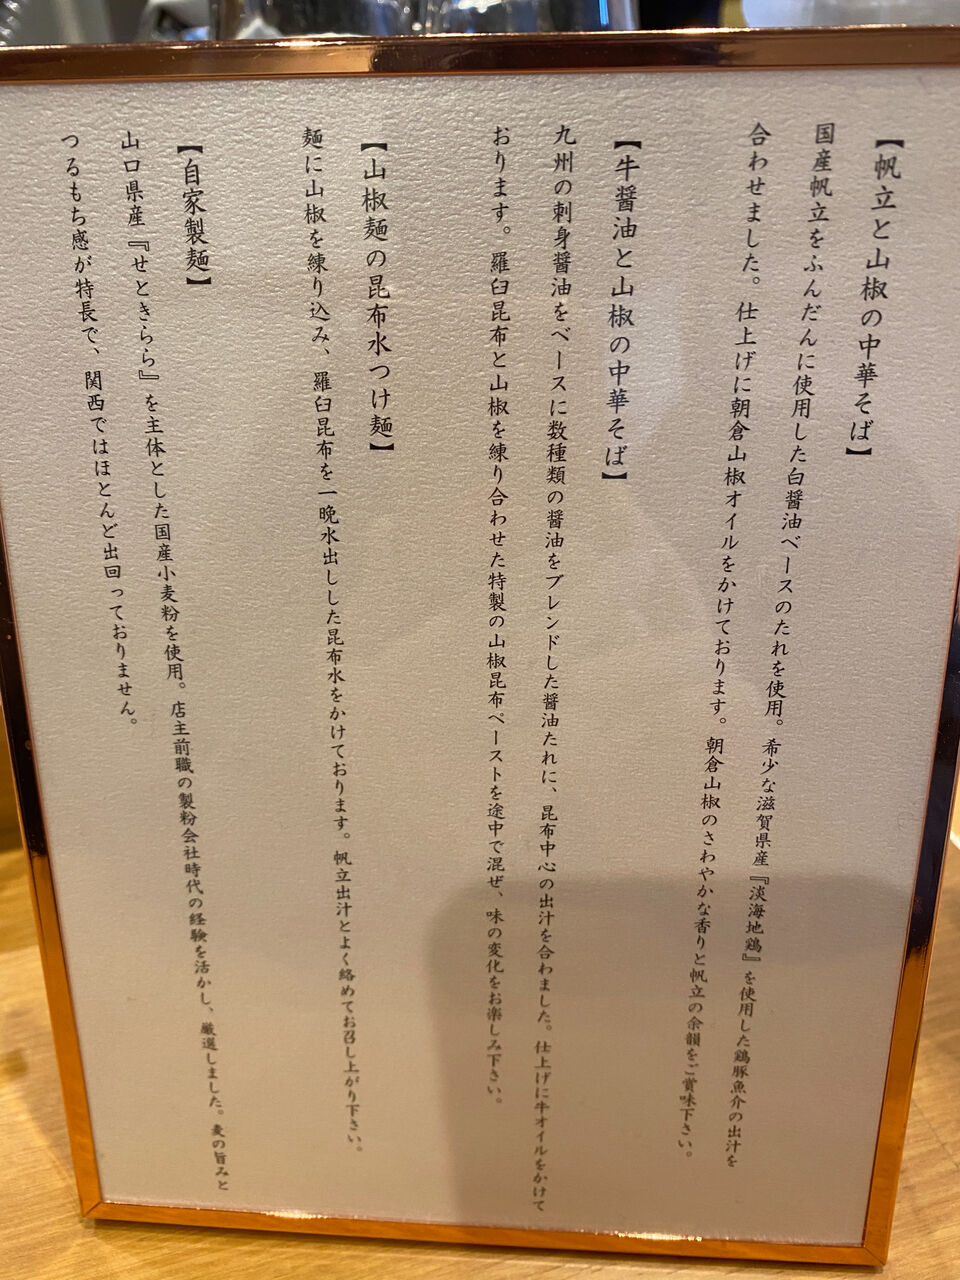 【帆立と山椒の中華そば】
国産帆立をふんだんに使用した白醤油ベースのたれを使用。希少な滋賀県産『淡海地鶏』を使用した鶏豚魚介の出汁を
合わせました。仕上げに朝倉山椒オイルをかけております。朝倉山椒のさわやかな香りと帆立の余韻をご賞味下さい。
【牛醤油と山椒の中華そば】
九州の刺身醤油をベースに数種類の醤油をブレンドした醤油たれに、昆布中心の出汁を合わました。仕上げに牛オイルをかけて
おります。羅臼昆布と山椒を練り合わせた特製の山椒昆布ペーストを途中で混ぜ、味の変化をお楽しみ下さい。
【山椒麺の昆布水つけ麺】
麺に山椒を練り込み、羅臼昆布を一晩水出しした昆布水をかけております。帆立出汁とよく絡めてお召し上がり下さい。
【自家製麺】
山口県産『せときらら』を主体とした国産小麦粉を使用。店主前職の製粉会社時代の経験を活かし、厳選しました。麦の旨みと
つるもち感が特長で、関西ではほとんど出回っておりません。